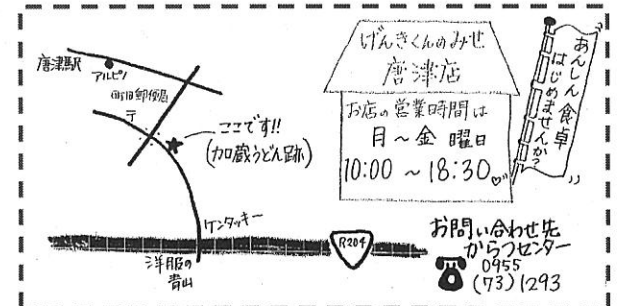 唐津駅
アルピノ
町田郵便局
〒
ここです!!
(加蔵うどん跡)
ケンタッキー
洋服の
青山
R204
げんきくんのみせ
唐津店
お店の営業時間は
月～金 曜日
10:00 ～18:30
あんしん食卓
はじめませんか?
お問い合わせ先
からつセンター
0955
(73)1293